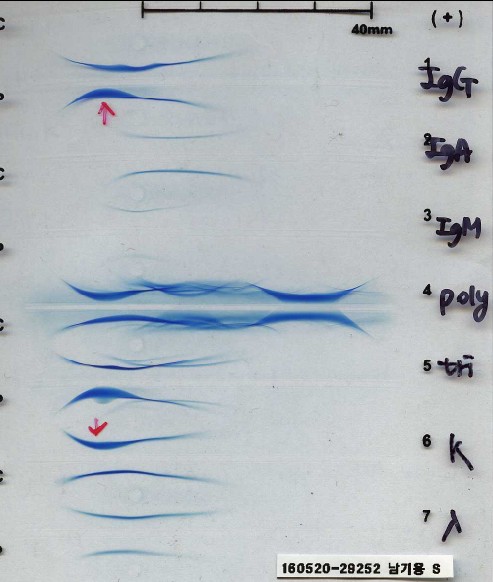 (+)
40mm
1 IgG
2 IgA
3 IgM
4 poly
5 tri
6 K
7 λ
160520-29252 남기용 S